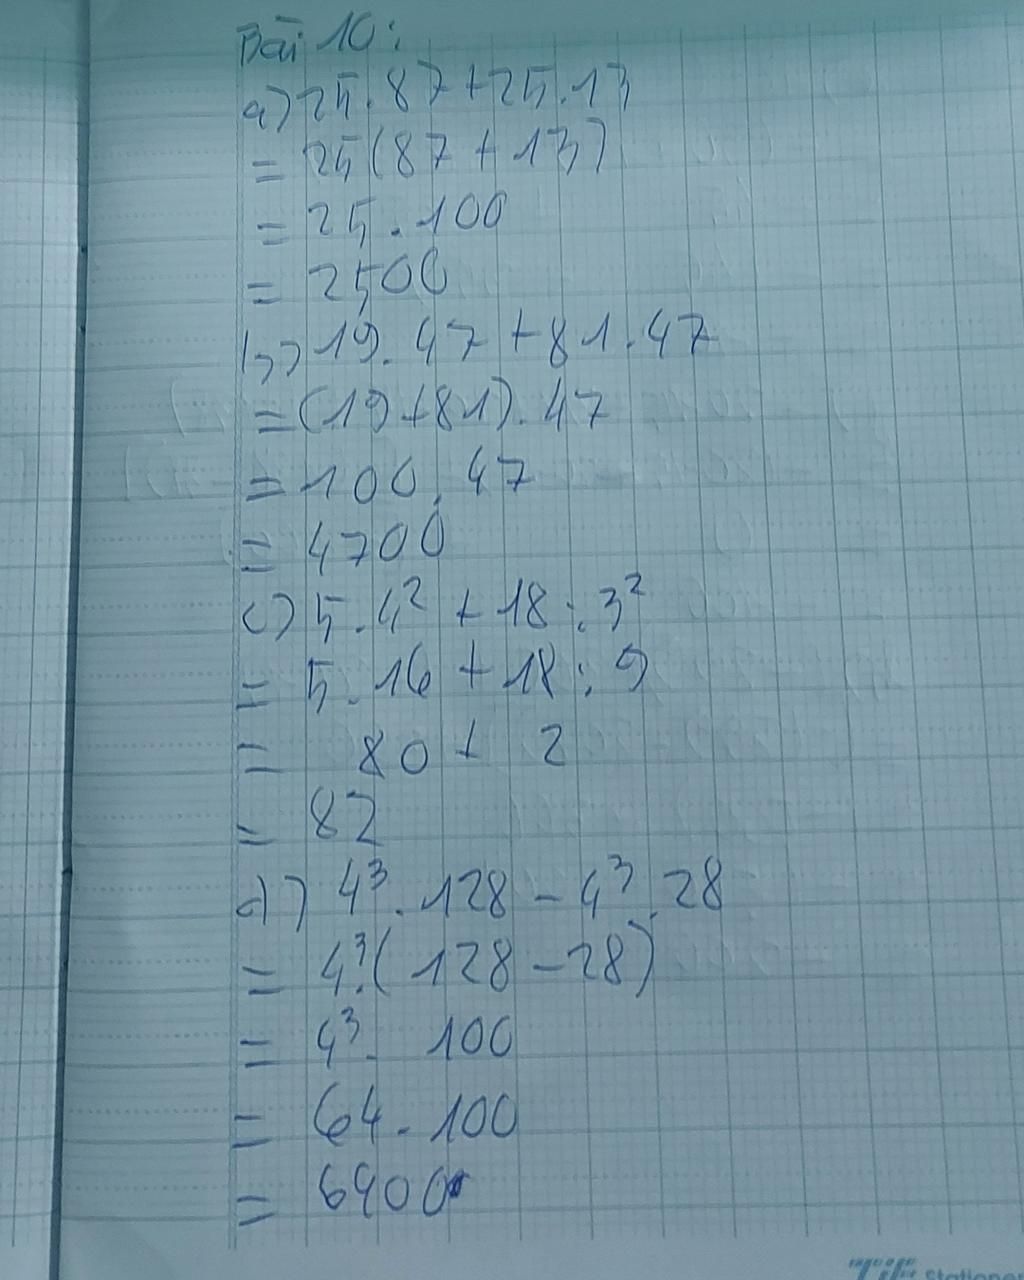 Bài 10:
a) 25.87+25.13
= 25(87+13)
= 25.100
= 2500
b) 19.47+81.47
=(19+81).47
= 100.47
= 4700
c) 5.4² + 18:3²
= 5.16 + 18:9
= 80 + 2
= 82
d) 4³.128 - 4³.28
= 4³.(128-28)
= 4³. 100
= 64.100
= 6400